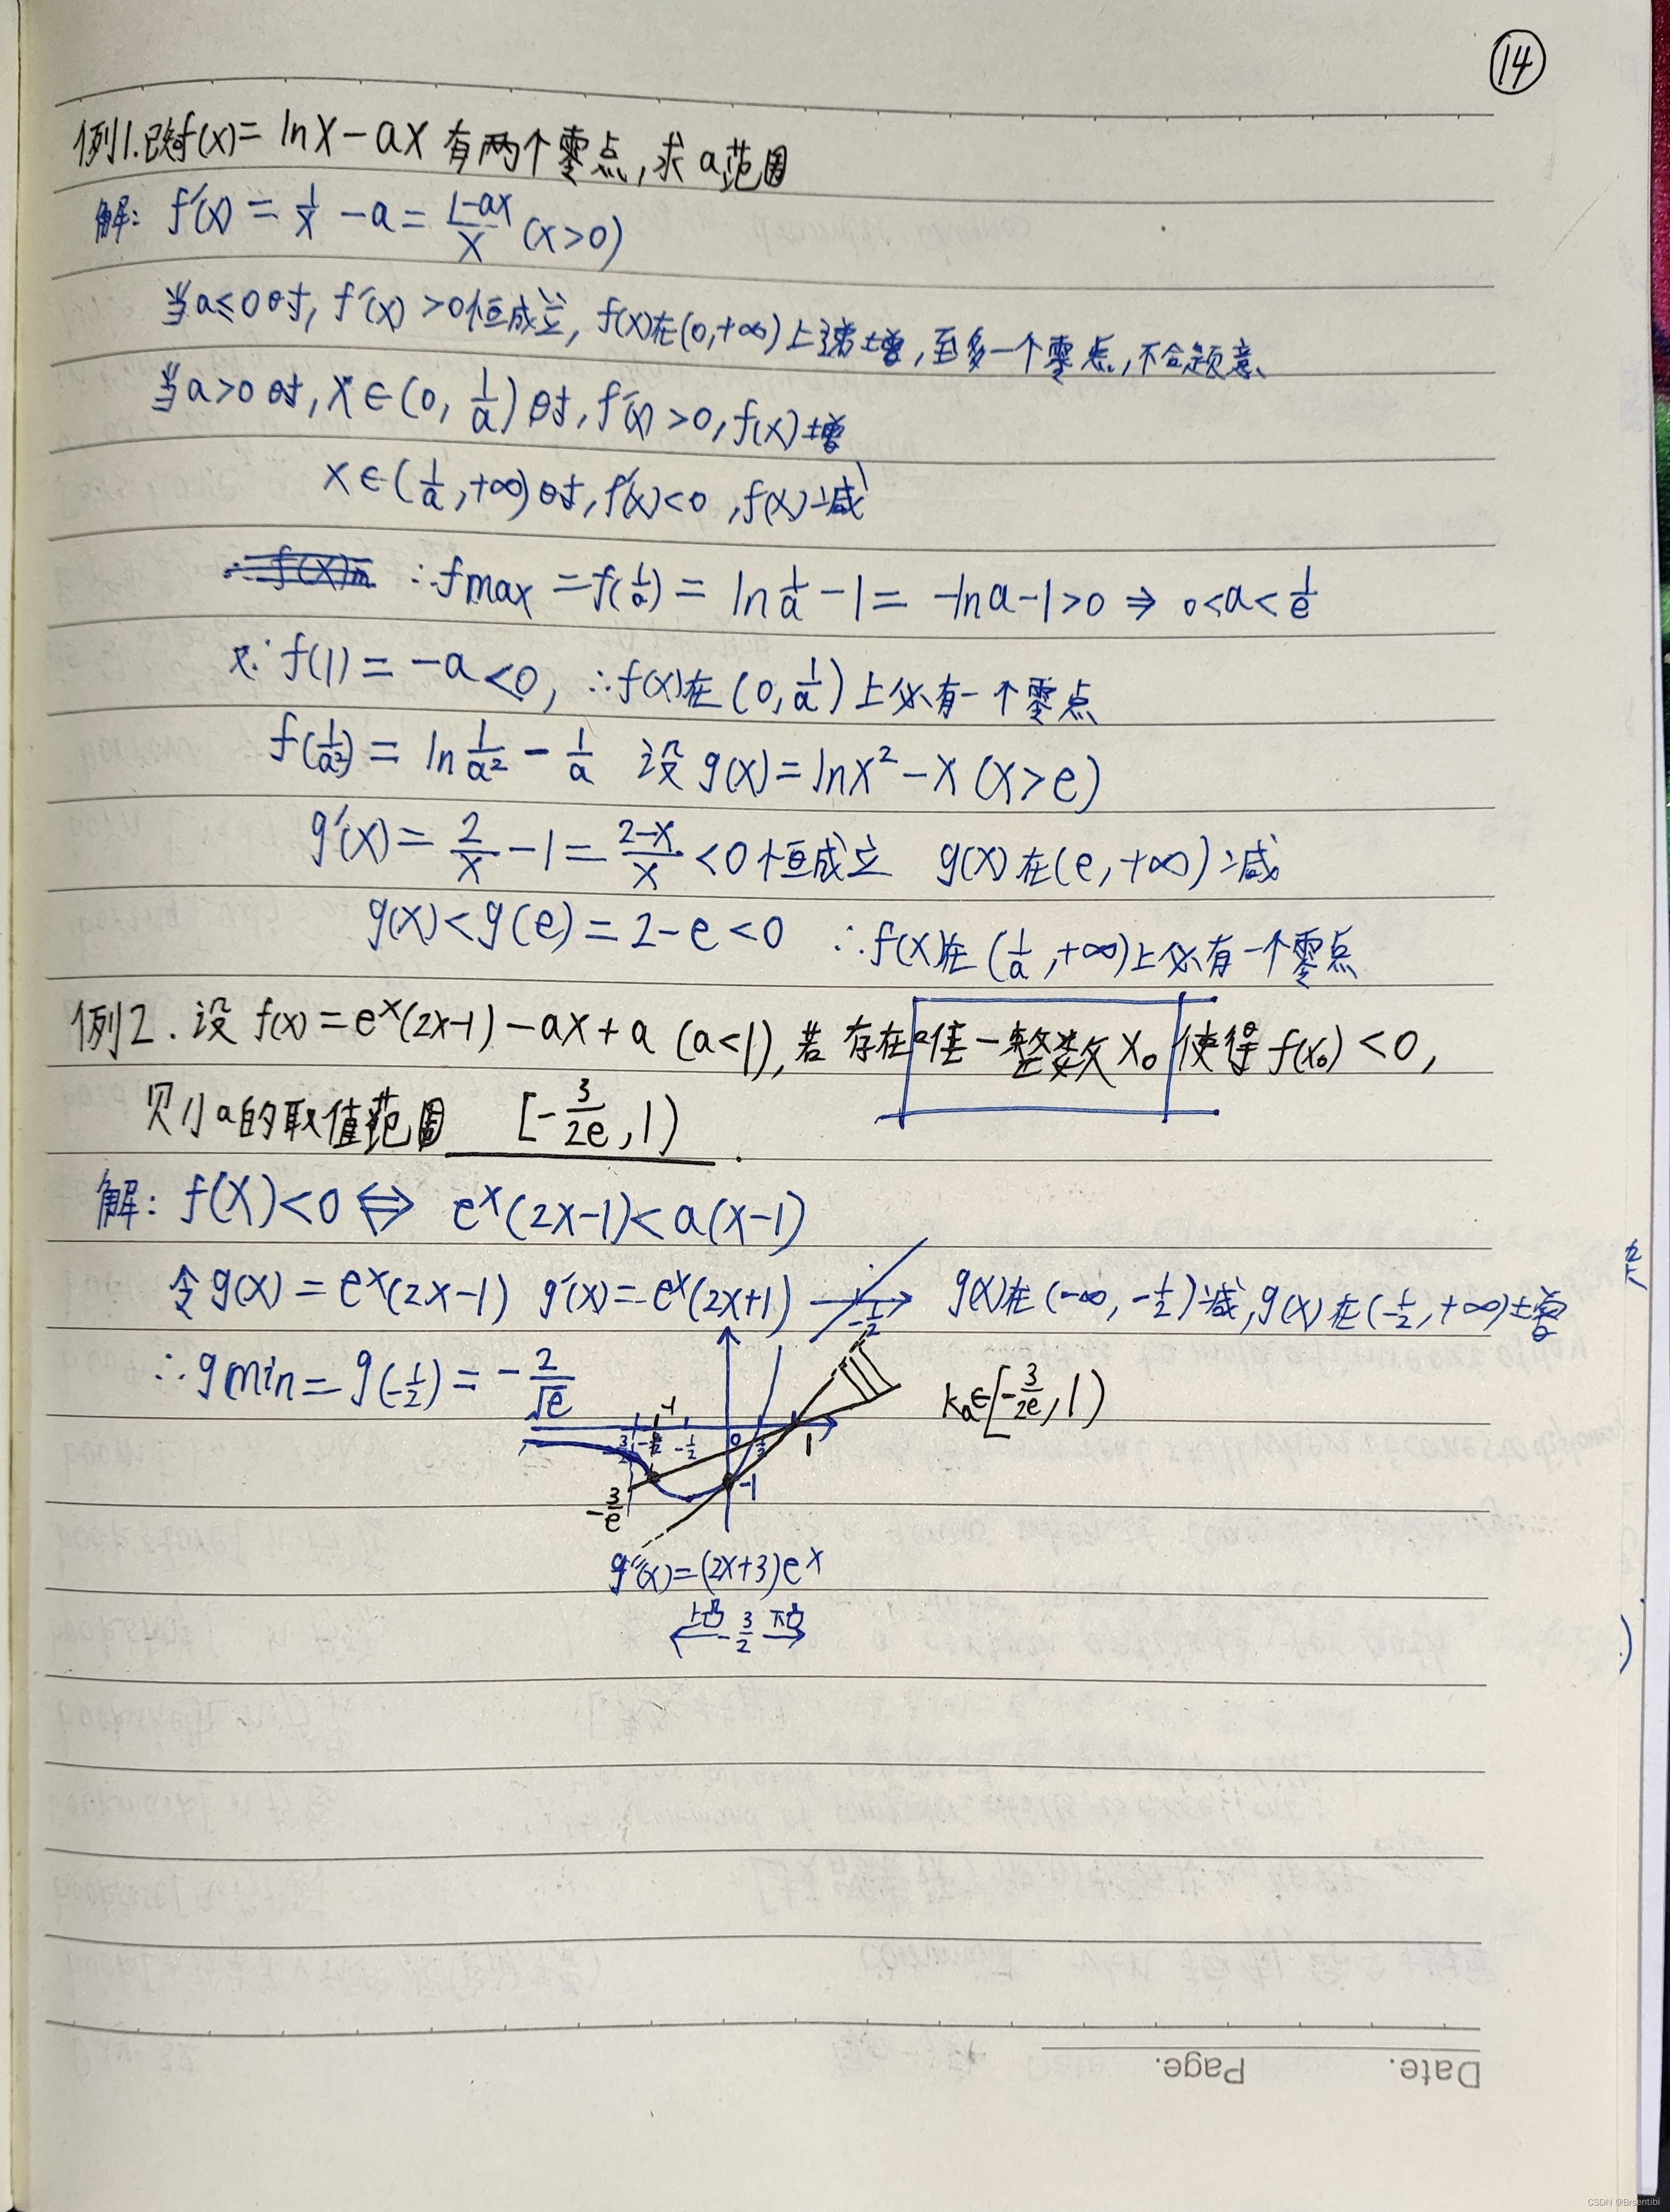 14
例1.已知f(x)=lnx-ax 有两个零点,求a范围
解: f'(x) = 1/x - a = (1-ax)/x (x>0)
当a≤0时, f'(x)>0恒成立, f(x)在(0,+∞)上递增,至多一个零点,不合题意、
当a>0时,x∈(0, 1/a)时,f'(x)>0,f(x)增
x∈(1/a,+∞)时,f'(x)<0,f(x)减
∴fmax =f(1/a) = ln1/a -1 = -lna-1>0 ⇒ 0<a<1/e
又∵f(1) = -a<0, ∴f(x)在(0,1/a)上必有一个零点
f(1/a²) = ln 1/a² - 1/a 设g(x)=lnx²-x (x>e)
g'(x) = 2/x -1 = (2-x)/x <0恒成立 g(x)在(e,+∞)减
g(x)<g(e)=2-e<0 ∴f(x)在(1/a,+∞)上必有一个零点
例2.设 f(x)=e^x(2x-1)-ax+a (a<1),若存在唯一整数x₀使得f(x₀)<0,
则a的取值范围 [-3/2e,1) .
解: f(x)<0 ⇔ e^x(2x-1)<a(x-1)
令g(x)=e^x(2x-1) g'(x)=e^x(2x+1) -1/2 g(x)在(-∞,-1/2)减,g(x)在(-1/2,+∞)增
∴gmin=g(-1/2)=-2/√e
ka∈[-3/2e,1)
-1
-3/2 -1/2 0 1/2 1
-1
-3/e
g''(x)=(2x+3)e^x
上凸 -3/2 下凸
Date. Page.
CSDN @Brsentibi